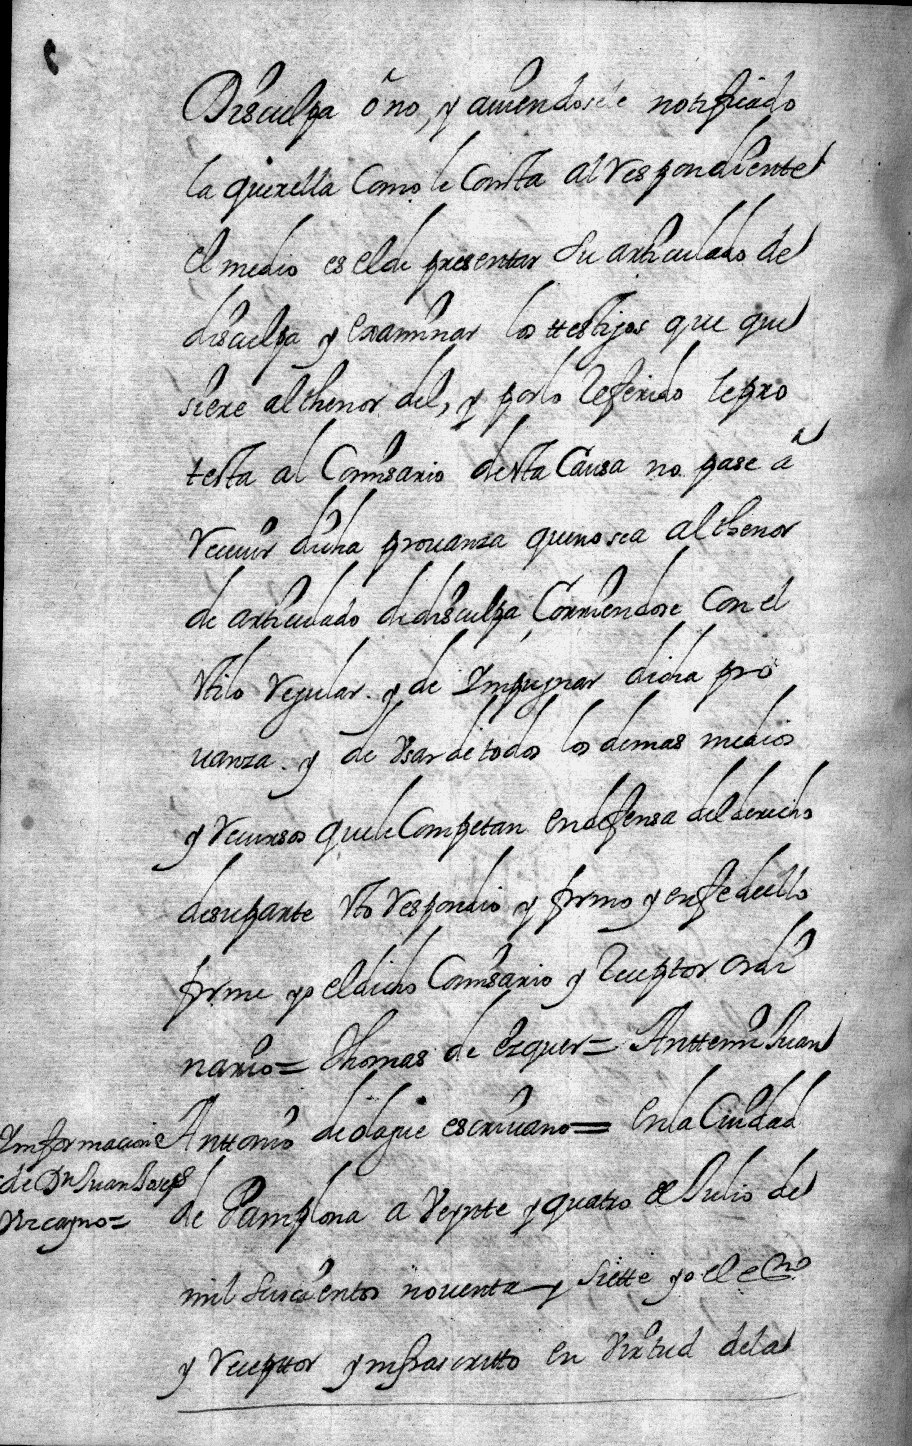 Disculpa ô no, y auiendosele notificado
la querella Como le Consta al respondiente
el medio es el de presentar su articulado de
disculpa y examinar los ttestigos que qui
siere al thenor del, y por lo referido le pro
testa al Comisario desta Causa no pase â
reciuir dicha prouanza que no sea al thenor
de articulado de disculpa Corriendose Con el
stilo regular. y de ympugnar dicha pro
uanza. y de usar de todos los demas medios
y recursos que le Competan en defensa del derecho
de su parte sto respondio y firmo y en fe de ello
firme yo el dicho Comisario y receptor ordi
nario = Thomas de Ezquer = Anttemi Juan
Anttonio de olague escriuano = En la Ciudad
Ymformacion
de Dn Juan Joseph
Vzcayno =
de Pamplona a veynte y quatro de Julio de
mil seiscientos nouenta y siette yo el esno
y receptor ynfrascritto en virtud de la